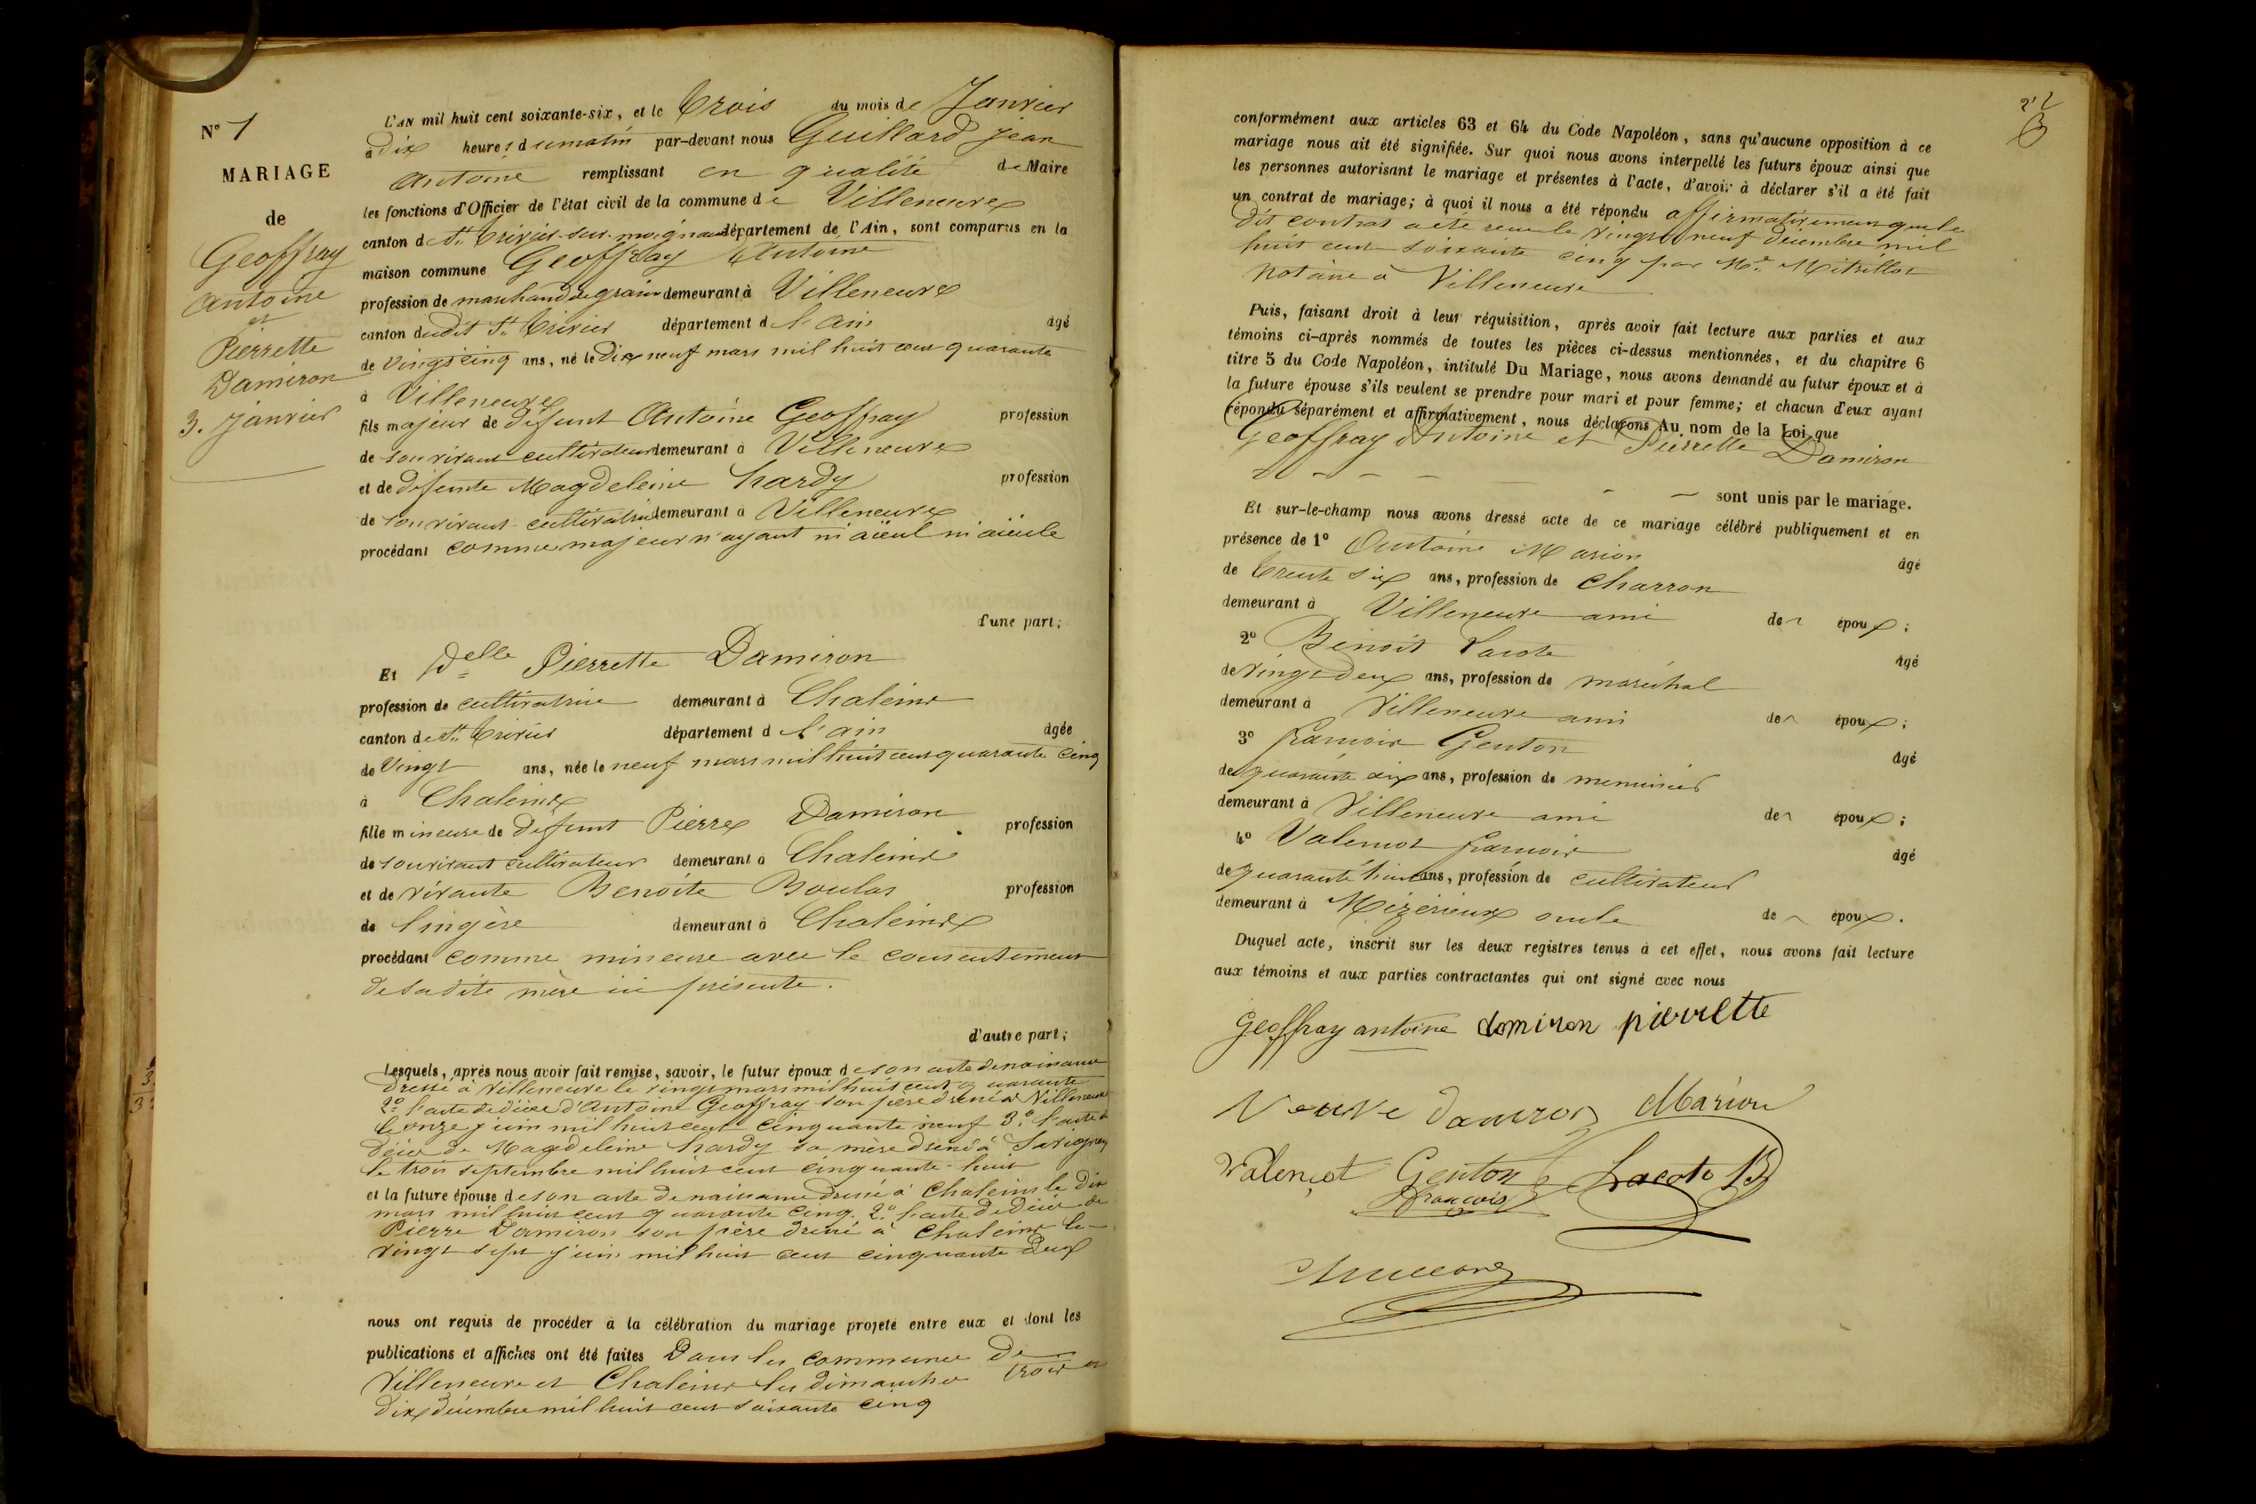 N° 1
MARIAGE
de
Geoffray
Antoine
et
Pierrette
Damiron
3. Janvier
L'AN mil huit cent soixante-six, et le Trois du mois de Janvier
à dix heures du matin par-devant nous Guillard Jean
Antoine remplissant en qualité de Maire
les fonctions d'Officier de l'état civil de la commune de Villeneuve
canton de St. Trivier-sur-moignans département de l'Ain, sont comparus en la
maison commune Geoffray Antoine
profession de marchand de grains demeurant à Villeneuve
canton dudit St. Trivier département de l'ain âgé
de vingt cinq ans, né le Dix neuf mars mil huit cent quarante
à Villeneuve
fils majeur de défunt Antoine Geoffray profession
de son vivant cultivateur demeurant à Villeneuve
et de défunte Magdeleine hardy profession
de son vivant cultivatrice demeurant à Villeneuve
procédant comme majeur n'ayant ni aïeul ni aïeule
d'une part;
Et Delle Pierrette Damiron
profession de cultivatrice demeurant à Chaleins
canton de St. Trivier département de l'ain âgée
de Vingt ans, née le neuf mars mil huit cent quarante cinq
à Chaleins
fille mineure de défunt Pierre Damiron profession
de son vivant cultivateur demeurant à Chaleins
et de vivante Benoite Boulas profession
de lingère demeurant à Chaleins
procédant comme mineure avec le consentement
de sa dite mère ici présente.
d'autre part;
Lesquels, après nous avoir fait remise, savoir, le futur époux de son acte de naissance
dressé à Villeneuve le vingt mars mil huit cent quarante
2° l'acte de décès d'Antoine Geoffray son père dressé à Villeneuve
le onze juin mil huit cent cinquante neuf 3° l'acte de
décès de Magdeleine hardy sa mère dressé à Savigneux
le trois septembre mil huit cent cinquante-huit
et la future épouse de son acte de naissance dressé à Chaleins le dix
mars mil huit cent quarante cinq. 2° l'acte de décès de
Pierre Damiron son père dressé à Chaleins le
vingt sept juin mil huit cent cinquante deux
nous ont requis de procéder à la célébration du mariage projeté entre eux et dont les
publications et affiches ont été faites Dans les communes de
Villeneuve et Chaleins les dimanches trois et
dix décembre mil huit cent soixante cinq
conformément aux articles 63 et 64 du Code Napoléon, sans qu'aucune opposition à ce
mariage nous ait été signifiée. Sur quoi nous avons interpellé les futurs époux ainsi que
les personnes autorisant le mariage et présentes à l'acte, d'avoir à déclarer s'il a été fait
un contrat de mariage; à quoi il nous a été répondu affirmativement que le
dit contrat a été reçu le vingt neuf décembre mil
huit cent soixante cinq par Me. Mitrillot
notaire à Villeneuve
Puis, faisant droit à leur réquisition, après avoir fait lecture aux parties et aux
témoins ci-après nommés de toutes les pièces ci-dessus mentionnées, et du chapitre 6
titre 5 du Code Napoléon, intitulé Du Mariage, nous avons demandé au futur époux et à
la future épouse s'ils veulent se prendre pour mari et pour femme; et chacun d'eux ayant
répondu séparément et affirmativement, nous déclarons Au nom de la Loi que
Geoffray Antoine et Pierrette Damiron
sont unis par le mariage.
Et sur-le-champ nous avons dressé acte de ce mariage célébré publiquement et en
présence de 1° Antoine Marion âgé
de trente six ans, profession de Charron
demeurant à Villeneuve ami des époux;
2° Benoît Lacote âgé
de vingt deux ans, profession de maréchal
demeurant à Villeneuve ami des époux;
3° francois Genton âgé
de quarante six ans, profession de menuisier
demeurant à Villeneuve ami des époux;
4° Valençot francois âgé
de quarante huit ans, profession de cultivateur
demeurant à Mizérieux oncle des époux.
Duquel acte, inscrit sur les deux registres tenus à cet effet, nous avons fait lecture
aux témoins et aux parties contractantes qui ont signé avec nous
Geoffray antoine damiron pierrette
Veuve damiron Marion
Valençot Genton Lacote B
françois